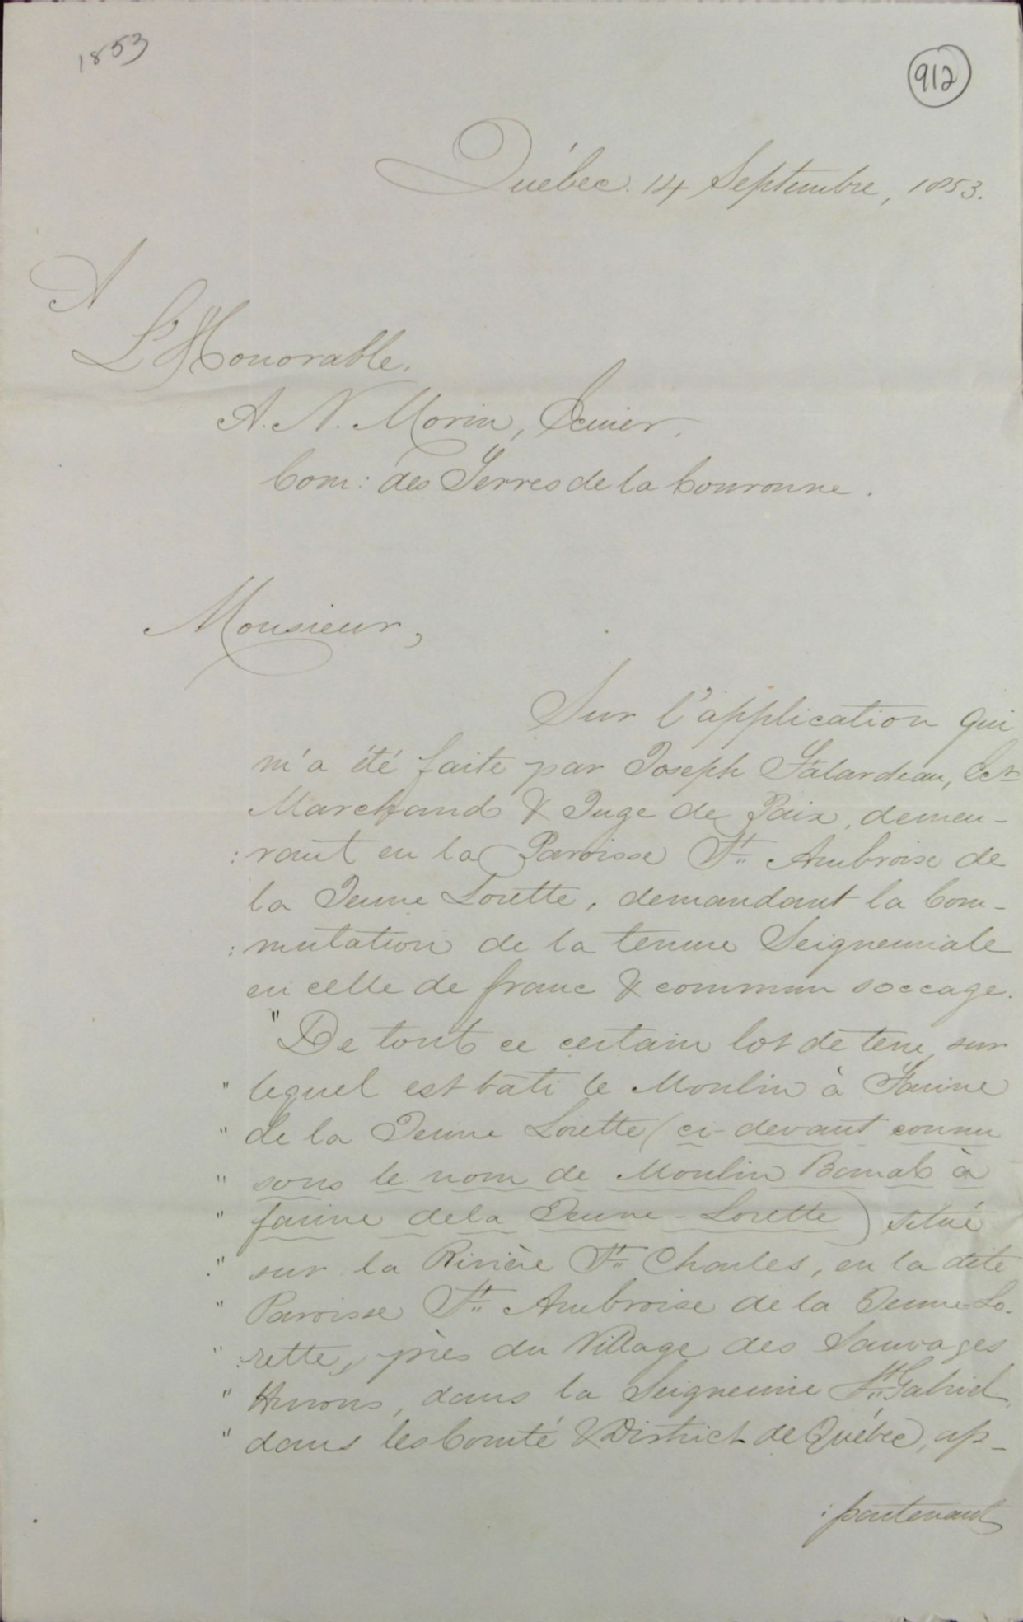 1853
912
Québec 14 Septembre, 1853.
A
L'Honorable.
A. N. Morin, Ecuier,
Com: des Terres de la Couronne.
Monsieur,
Sur l'application qui
m'a été faite par Joseph Falardeau, Ecr
Marchand & Juge de Paix, demeu-
:rant en la Paroisse St. Ambroise de
la Jeune Lorette, demandant la Com-
:mutation de la tenure Seigneuriale
en celle de franc & commun soccage.
"De tout ce certain lot de terre, sur
" lequel est bâti le Moulin à Farine
" de la Jeune Lorette (ci-devant connu
" sous le nom de Moulin Banal à
" farine de la Jeune Lorette) situé
" sur la Rivière St. Charles, en la dite
" Paroisse St. Ambroise de la Jeune Lo-
" :rette, près du Village des Sauvages
" Hurons, dans la Seigneurie St. Gabriel,
" dans les Comté & District de Québec, ap-
:partenant